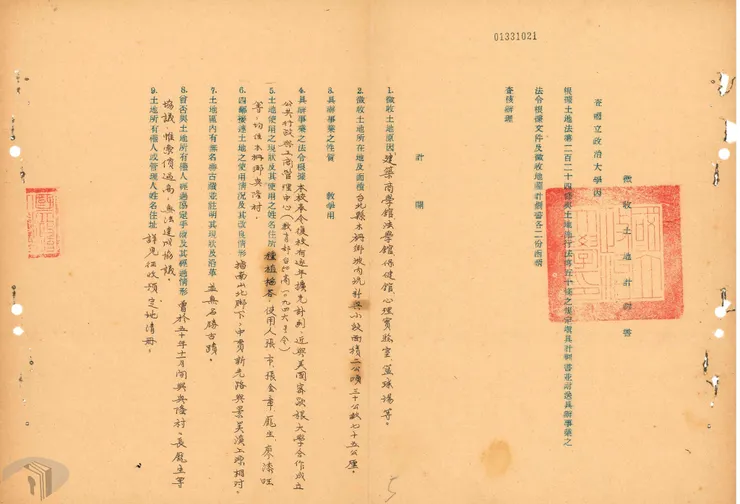 01331021
徵收土地計劃書
查國立政治大學因
根據土地法第二百二十四條與土地施行法第五十條之規定擬具計劃書並附逸具辦事業之
法令根據文件及徵收地圖計劃書各二份函請
查核辦理
計開
1.徵收土地原因 建築商學館法學館保健館心理實驗室、籃球場等。
2.徵收土地所在地及面積 台北縣木柵鄉坡內坑計 小段面積二公頃三十公畝七十五公厘。
3.具辦事業之性質 教學用
4.具辦事業之法令根據 本校奉令復校有逐年擴充計劃,近與美國密歇根大學合作成立
公共行政與工商管理中心(教育部台 高一九四六 令)
5.土地使用之現狀及其使用之姓名住所 種植 使用人張 市、張金章、龐生、廖 旺
等,均住木柵鄉興隆村。
6.四鄰接連土地之使用情況及其改良情形 指南山北鄉下,中貫新光路與景美溪上游相對。
7.土地區內有無名勝古蹟並註明其現狀及沿革 並無名勝古蹟。
8.曾否與土地所有權人經過協定手續及其經過情形 曾於五十年十一月間與興隆村 長龐生等
協議,惟索價過高,無法達成協議。
9.土地所有權人或管理人姓名住址 詳見征收預定地清冊。
5